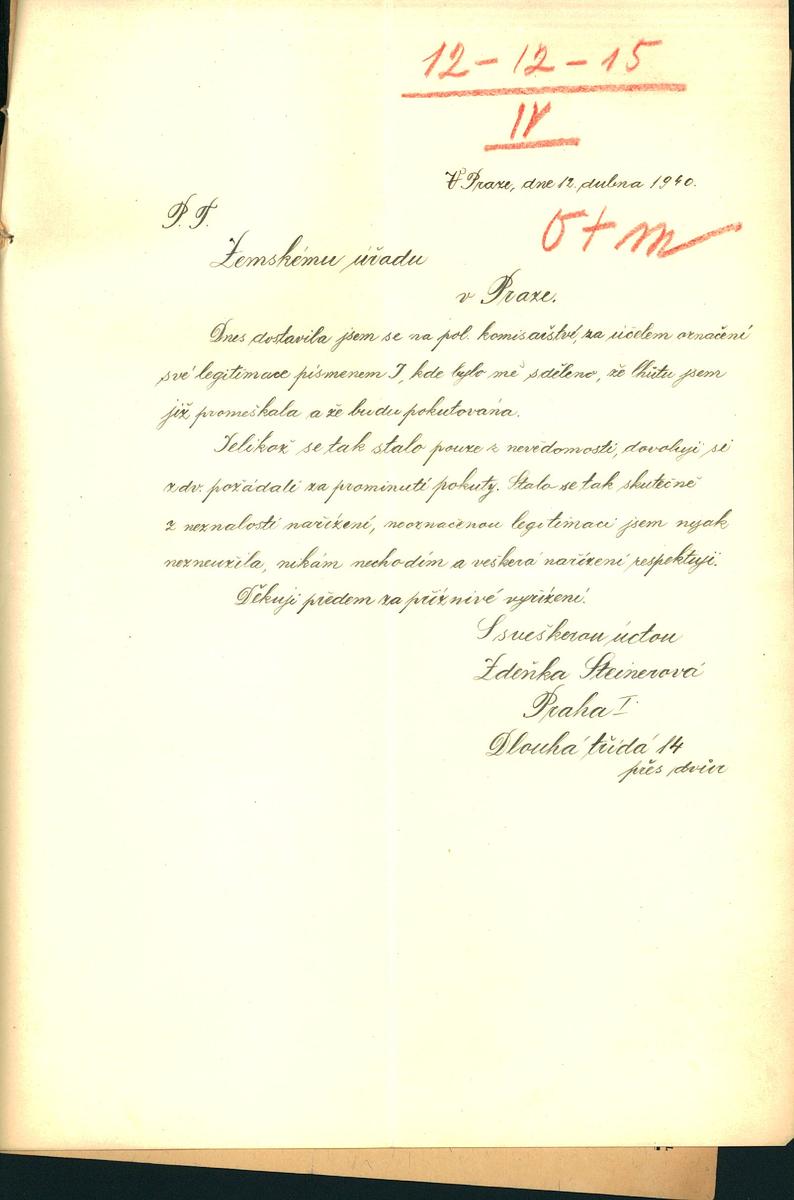 12-12-15
IV
V Praze, dne 12. dubna 1940.
P. T.
Zemskému úřadu
v Praze.
Dnes dostavila jsem se na pol. komisařství, za účelem označení
své legitimace písmenem J, kde bylo mě sděleno, že lhůtu jsem
již promeškala a že budu pokutována.
Jelikož se tak stalo pouze z nevědomosti, dovoluji si
zdv. požádati za prominutí pokuty. Stalo se tak skutečně
z neznalosti nařízení, neoznačenou legitimaci jsem nijak
nezneužila, nikám nechodím a veškerá nařízení respektuji.
Děkuji předem za příznivé vyřízení.
S veškerou úctou
Zdeňka Steinerová
Praha I.
Dlouhá třída 14
přes dvůr